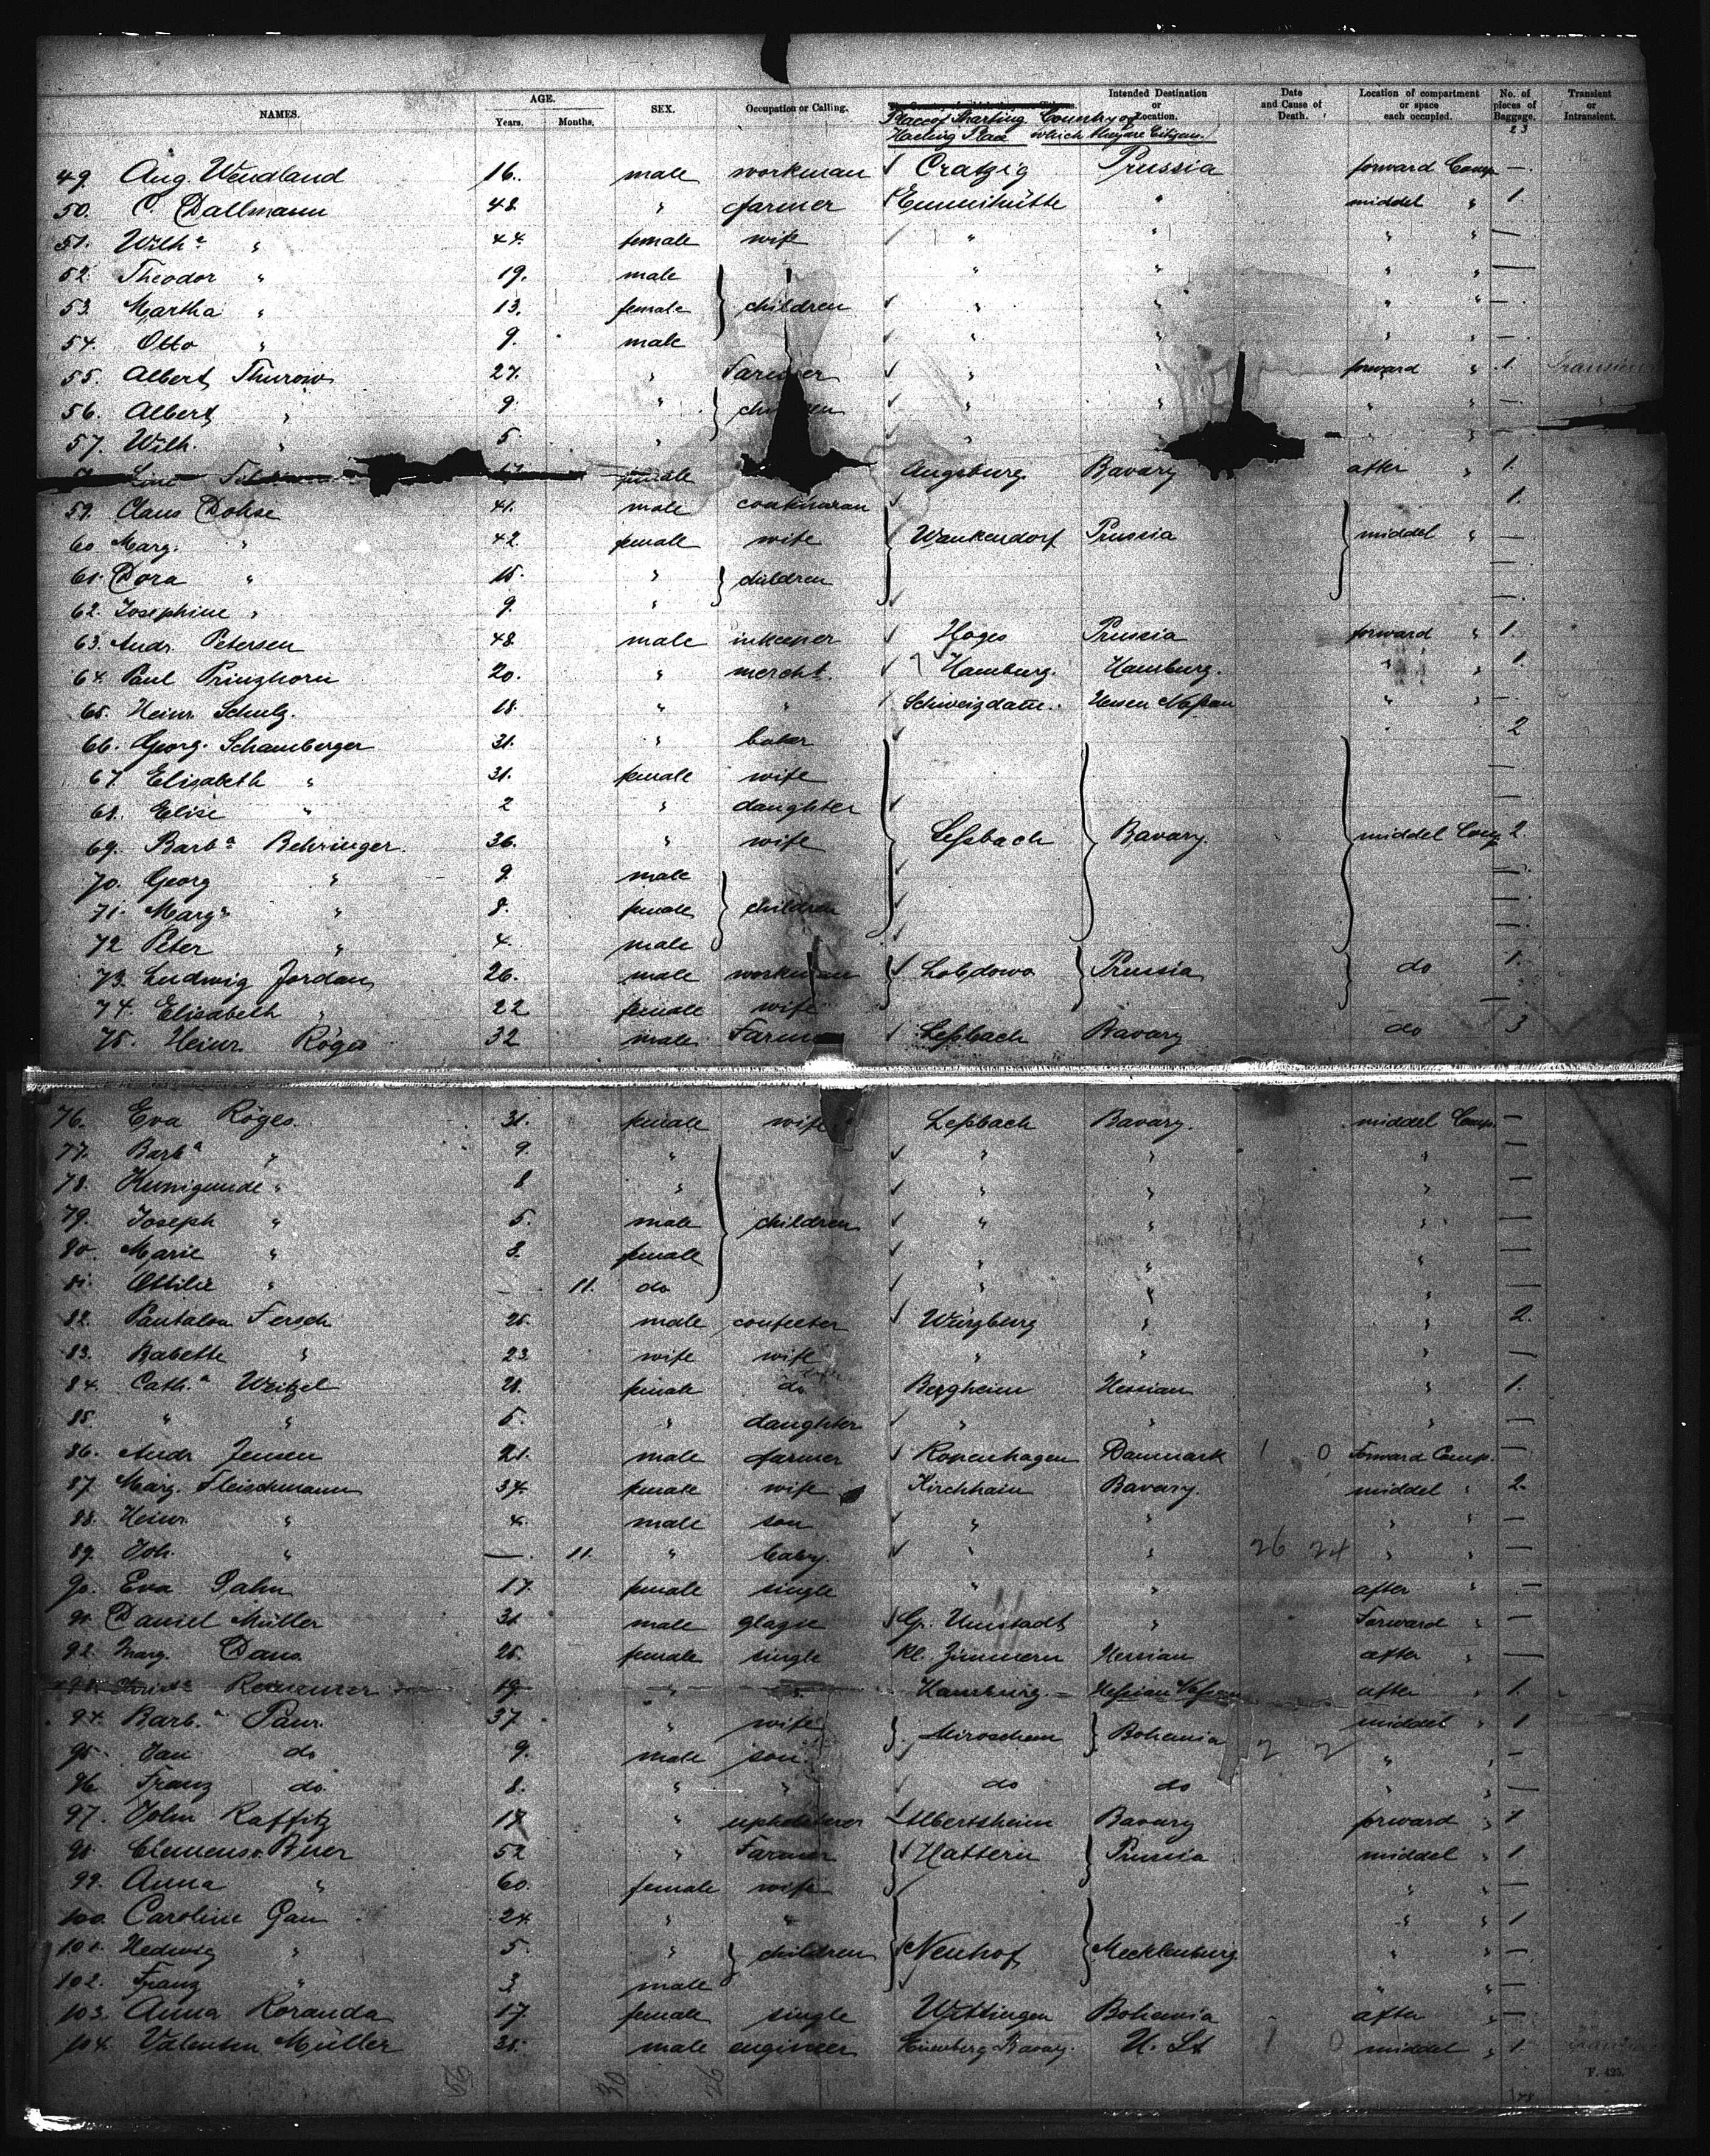 NAMES. AGE. Years. Months. SEX. Occupation or Calling. Place of Starting Country of which they are Citizen. Intended Destination or Location. Date and Cause of Death. Location of compartment or space each occupied. No. of pieces of Baggage. Transient or Intransient.
23
49. Aug. Wendland 16. male workman Cratzig Prussia forward Comp —
50. C. Dallmann 48. " farmer " middel " 1.
51. Wilh.a " 44. female wife " " " " —
52. Theodor " 19. male " " " " —
53. Martha " 13. female children " " " " —
54. Otto " 9. male " " " " —
55. Albert Thurow 27. " Farmer " " forward " 1.
56. Albert " 9. " children " " " " —
57. Wilh. " 5. " " " " —
female Augsburg Bavary after " 1.
59. Claus Dohse 41. male 1.
60. Marg. " 42. female wife Wankendorf Prussia middel " —
61. Dora " 15. " children
62. Josephine " 9. " —
63. Andr. Petersen 48. male inkeeper Hoges Prussia forward " 1.
64. Paul Pringhorn 20. " mercht. Hamburg. Hamburg. " " 1.
65. Heinr. Schulz. 18. " " Hessen Naßau " " —
66. Georg. Schamberger 31. " baker 2
67. Elisabeth " 31. female wife —
68. Elise " 2 " daughter —
69. Barb.a Behringer. 36. " wife Leßbach Bavary. middel Comp 2.
70. Georg " 9. male —
71. Marg.a " 8. female children —
72 Peter " 4. male —
73. Ludwig Jordan 26. male workman Lobdowo Prussia do 1.
74. Elisabeth " 22 female wife —
75. Heinr. Röges 32 male Farmer Leßbach Bavary do 3
76. Eva Röges. 31. female wife Leßbach Bavary. middel Comp. —
77. Barb.a " 9. " " " " —
78. Kunigunde " 8 " " " " —
79. Joseph " 5. male children " " " —
80. Marie " 3. female " " " —
81. Ottilie " — 11. do " " " —
82. Pantalon Fersch 25. male confecter Würzburg " " 2.
83. Babette " 23 wife wife " " " —
84. Cath.a Weitzel 28. female do Bergheim Hessian " 1.
85. " " 5. " daughter " " " —
86. Andr. Jensen 21. male farmer Kopenhagen Danmark 1 0 Forward Comp. —
87. Marg. Fleischmann 34. female wife Kirchhain Bavary. middel " 2.
88. Heinr. " 4. male son " " " " —
89. Joh. " — 11. " baby. " " 26 24 " " —
90. Eva Sahn 17. female single " " after " —
91. Daniel Müller 31 male Gr. Umstadt " Forward " —
92. Marg. Dans. 25. female single Kl. Zimmern Hessian after " —
93. 19. " " Hamburg. Heßian Naßau after " 1.
94. Barb.a Paur. 37. " wife Miroschau Bohemia middel " 1
95. Jan do 9. male son 2 2 " " —
96. Franz do. 8. " " do do " " —
97. John Raffitz 17 " upholsterer Albertsheim Bavary forward " 1
98. Clemens Buer 52 " Farmer Hattern Prussia middel " 1
99. Anna " 60. female wife " " —
100. Caroline Gau 24. " " " " 1
101. Hedwig " 5. " children Neuhof Mecklenburg " " —
102. Franz " 3 male " " —
103. Anna Koranda 17. female single Wittingen Bohemia after " —
104. Valentin Müller 35. male engineer Eisenberg Bavary. U. St 1 0 middel " 1.
30 26
F. 425.